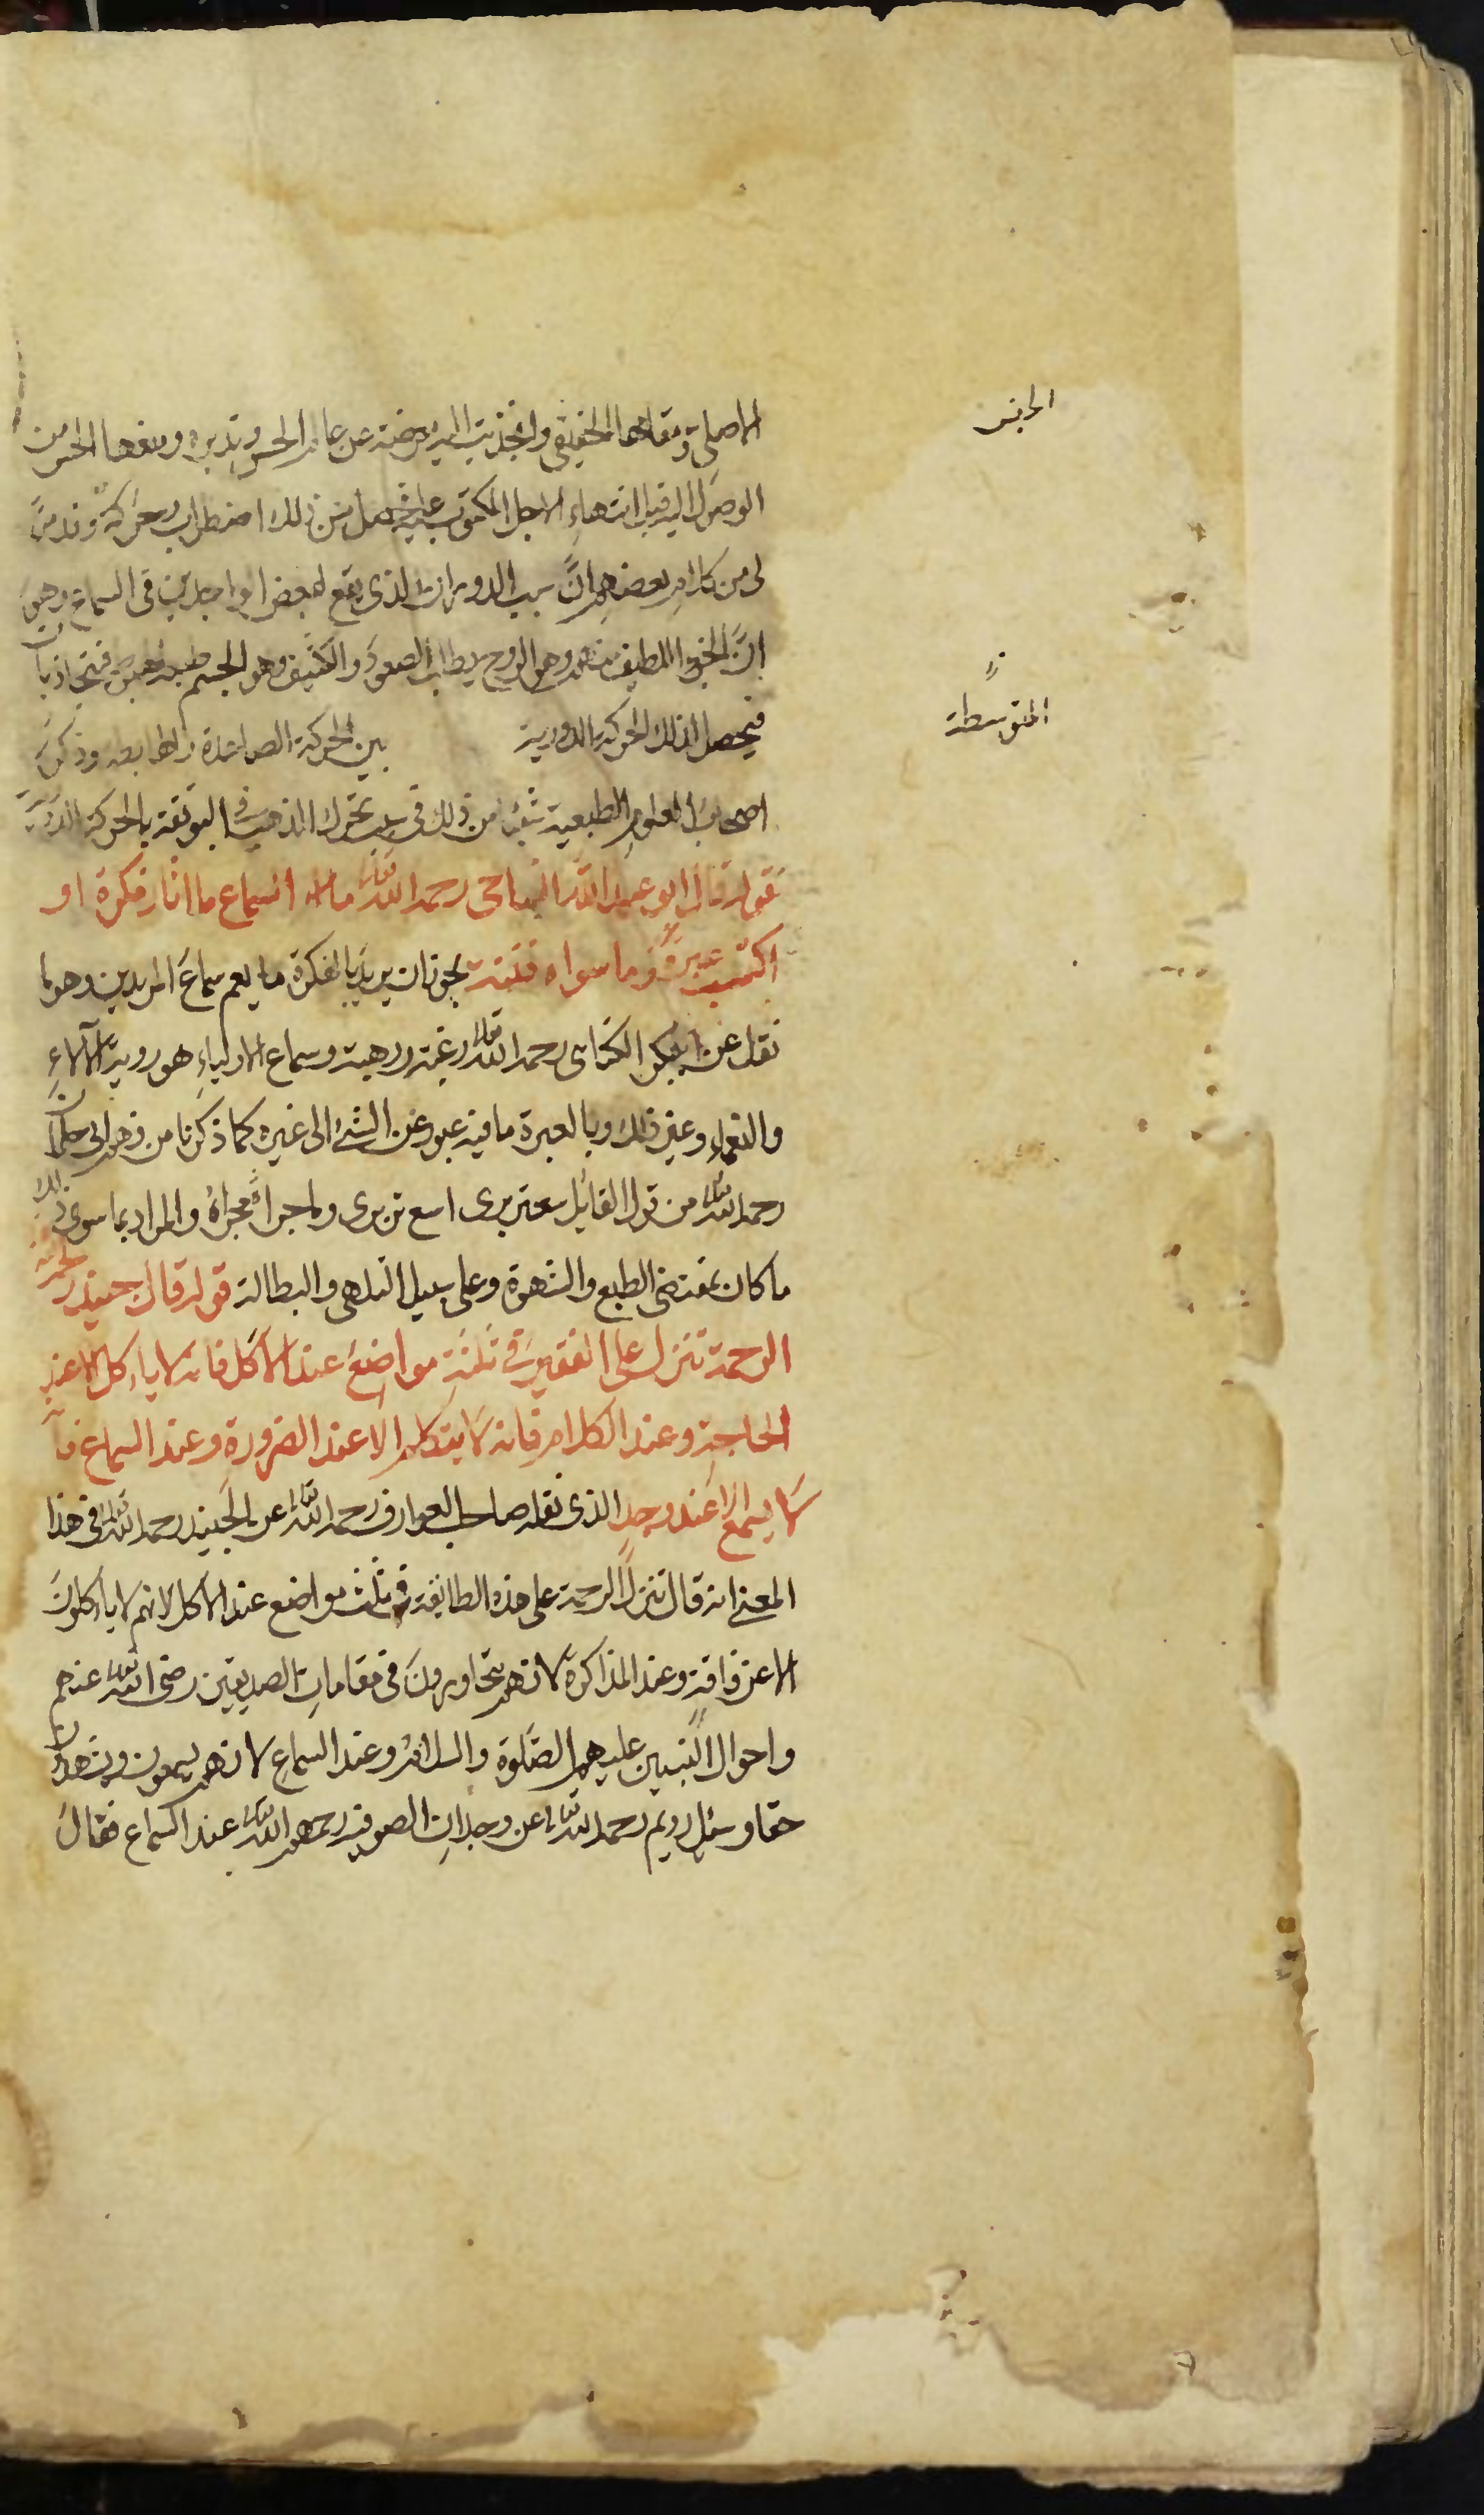 الاصلى ومقامها الحقيقى وانجذبت اليه معرضة عن عالم الحس وتدبيره ومنعها الحس من
الجنس
الوصول اليه قبل انتهاء الاجل المكتوب عليه حصل من ذلك اضطراب وحركة وقد مر
لى من كلام بعضهم ان سبب الدوران الذى يقع لبعض الواجدين فى السماع وهو
ان الجزء اللطيف منه وهو الروح يطلب الصعود والكثيف وهو الجسم فيتجاذبان
فيحصل لذلك الحركة الدورية بين الحركة الصاعدة والهابطة وذكر
المتوسطة
اصحاب العلوم الطبيعية شيئا من ذلك فى سبب تحرك الذهب فى البوتقة بالحركة الدورية
قوله قال ابو عبد الله النباجى رحمه الله تعالى السماع ما اثار فكرة او
اكتسب عبرة وما سواه فتنة يجوز ان يريد بالفكرة ما يعم سماع المريدين وهو ما
نقل عن ابى بكر الكتانى رحمه الله تعالى رغبة ورهبة وسماع الاولياء هو روية الآلاء
والنعماء وغير ذلك وبالعبرة ما فيه عبور عن الشئ الى غيره كما ذكرنا من فهم ابى حلمان
رحمه الله تعالى من قول القائل سعتر برى اسع تر برى وما جرا مجراه والمراد بما سوى ذلك
ما كان بمقتضى الطبع والشهوة وعلى سبيل التلهى والبطالة قوله قال جنيد رحمه
الرحمة تنزل على الفقير فى ثلثة مواضع عند الاكل فانه لا ياءكل الا عند
الحاجة وعند الكلام فانه لا يتكلم الا عند الضرورة وعند السماع فانه
لا يسمع الا عند وجد الذى نقله صاحب العوارف رحمه الله تعالى عن الجنيد رحمه الله تعالى فى هذا
المعنى انه قال تنزل الرحمة على هذه الطايفة فى ثلث مواضع عند الاكل لانهم لا ياءكلون
الا عن فاقة وعند المذاكرة لانهم يتحاورون فى مقامات الصديقين رضى الله تعالى عنهم
واحوال النبيين عليهم الصلوة والسلام وعند السماع لانهم يسمعون ويشهدون
حقا وسئل رويم رحمه الله تعالى عن وجدان الصوفية رحمهم الله تعالى عند السماع فقال